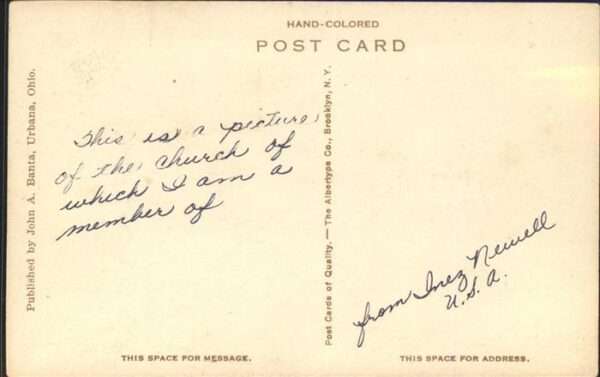 HAND-COLORED
POST CARD
Published by John A. Banta, Urbana, Ohio.
This is a picture
of the church of
which I am a
member of
Post Cards of Quality.—The Albertype Co., Brooklyn, N. Y.
from Inez Newell
U.S.A.
THIS SPACE FOR MESSAGE.
THIS SPACE FOR ADDRESS.